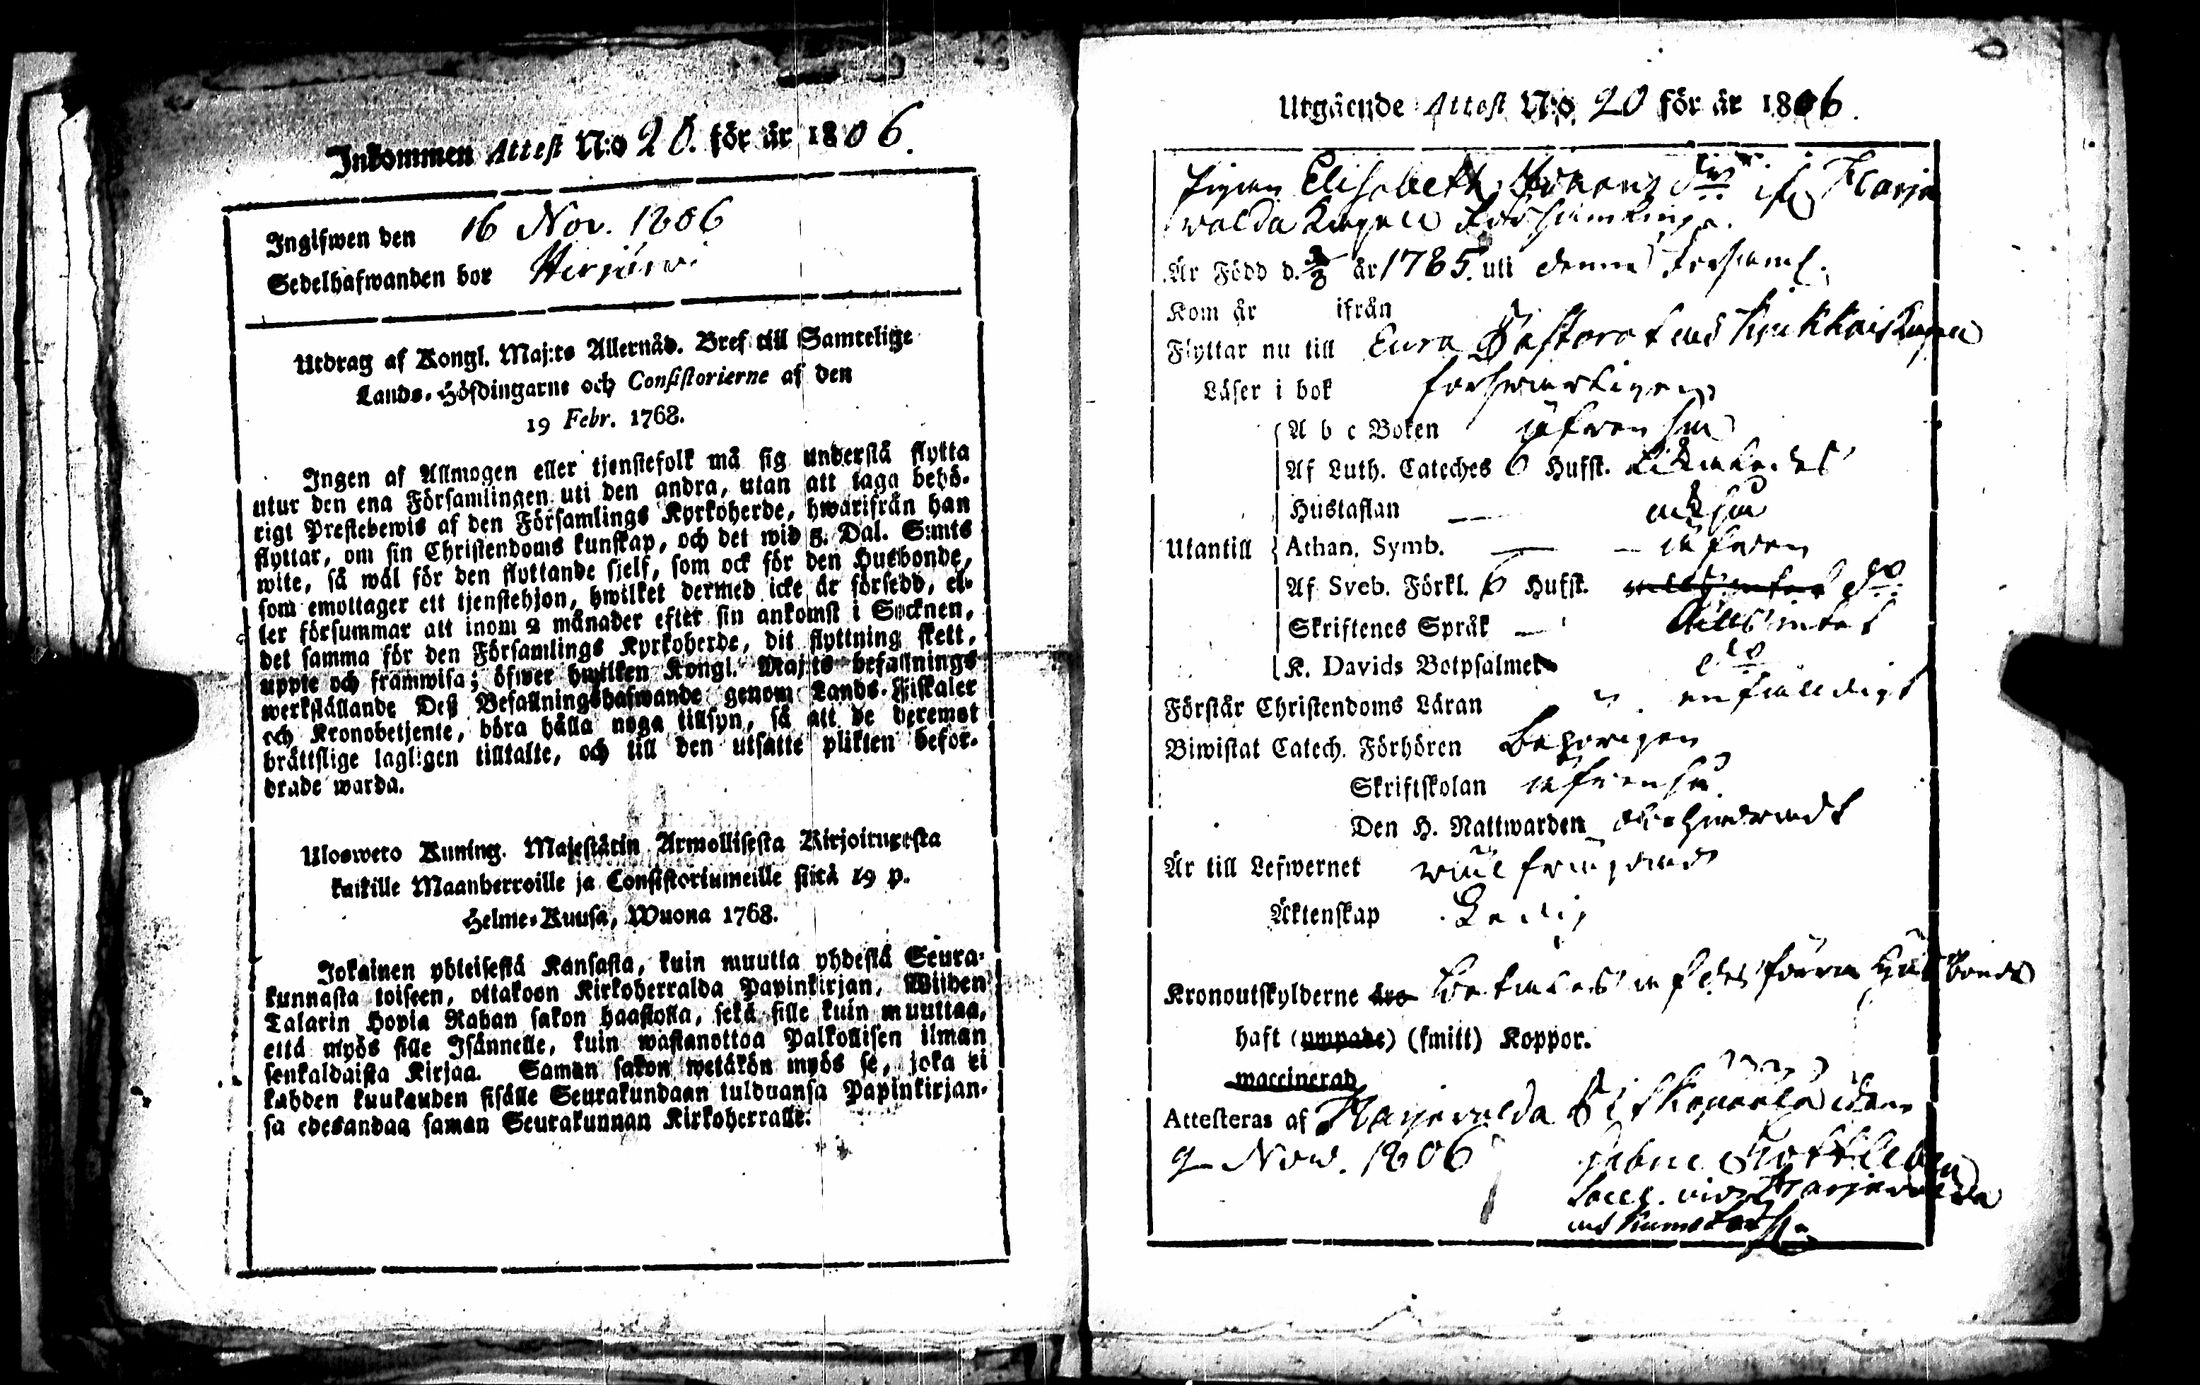 Inkommen Attest N:o 20. för år 1806.
Ingifwen den 16 Nov. 1806
Sedelhafwanden bor Hirjärvi
Utdrag af Kongl. Maj:ts Allernåd. Bref till Samtelige
Lands-Höfdingarne och Consistorierne af den
19 Febr. 1768.
Ingen af Allmogen eller tjenstefolk må sig understå flytta
utur den ena Församlingen uti den andra, utan att taga behö-
rigt Prestebewis af den Församlings Kyrkoherde, hwarifrån han
flyttar, om sin Christendoms kunskap, och det wid 5. Dal. S:mts
wite, så wäl för den flyttande sjelf, som ock för den Husbonde,
som emottager ett tjenstehjon, hwilket dermed icke är försedd, el-
ler försummar att inom 2 månader efter sin ankomst i Socknen,
det samma för den Församlings Kyrkoherde, dit flyttning skett,
uppte och framwisa; öfwer hwilken Kongl. Maj:ts befallnings
werkställande Deß Befallningshafwande genom Lands-Fiskaler
och Kronobetjente, böra hålla noga tillsyn, så att de deremot
bråttslige lagligen tilltalte, och till den utsatte plikten befor-
drade warda.
Ulosweto Kuning. Majestätin Armollisesta Kirjoituxesta
kaikille Maanherroille ja Consistoriumeille siitä 19 p.
Helme-Kuusa, Wuona 1768.
Jokainen yhteisestä Kansasta, kuin muutta yhdestä Seura-
kunnasta toiseen, ottakoon Kirkoherralda Papinkirjan, Wiiden
Talarin Hopia Rahan sakon haastolla, sekä sille kuin muuttaa,
että myös sille Isännelle, kuin wastanottoa Palkollisen ilman
senkaldaista Kirjaa. Saman sakon wetäkön myös se, joka ei
kahden kuukauden sisälle Seurakundaan tulduansa Papinkirjan-
sa edesandaa saman Seurakunnan Kirkoherralle.
Utgående Attest N:o 20 för år 1806.
Pigan Elisabeth Johans d:r if Harja
valda Kapell Församling.
Är Född d. år 1785. uti denna Forsaml.
Kom år ifrån
Flyttar nu till Eura Pastorat och
Läser i bok forswarligen
A b c Boken äfwen
Af Luth. Cateches 6 Hufst. Likaledes
Hustaflan
Utantill Athan. Symb. äfven
Af Sveb. Förkl. 6 Hufst. d:o
Skriftenes Språk Alls intet
K. Davids Botpsalmer d:o
Förstår Christendoms Läran enfaldigt
Biwistat Catech. Förhören Behörigen
Skriftskolan
Den H. Nattwarden obehindradt
Är till Lefwernet wäl frejdad
Äktenskap Ledig
Kronoutskylderne äro Betalas af dess förra Husbonde
haft (ympade) (smitt) Koppor.
waccinerad
Attesteras af Harjavalda
9 Nov. 1806
Gabriel Gottleben
Sacell. vid Harjavalda